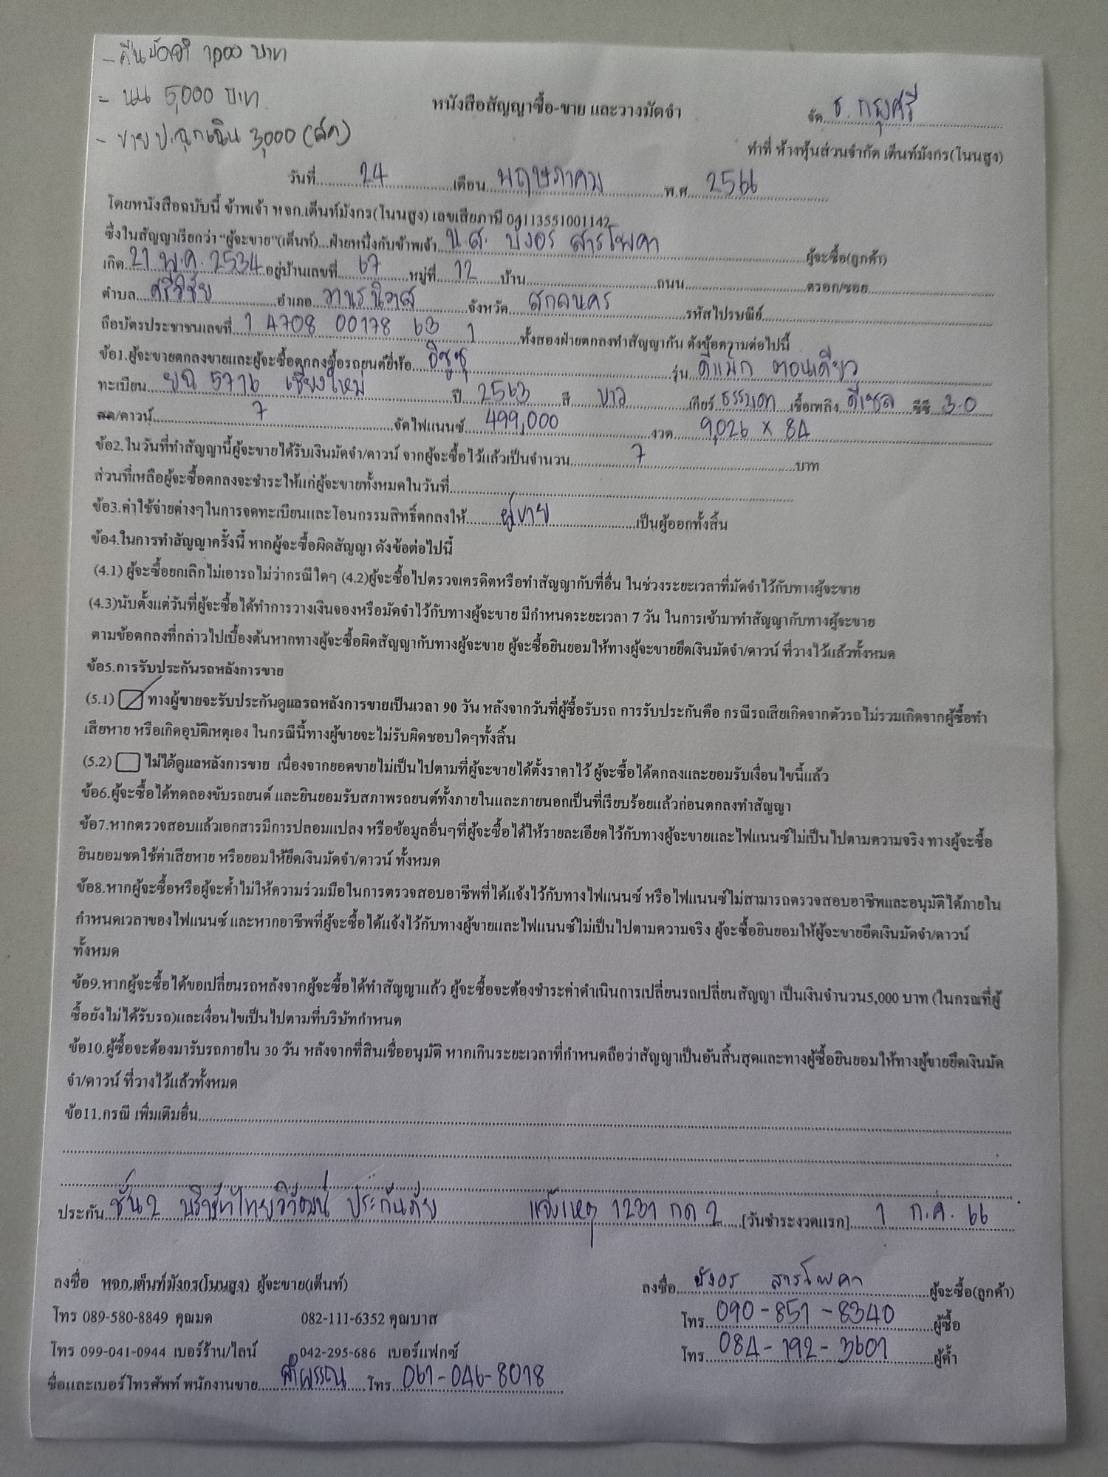 - คืนมัดจำ 1,000 บาท
- นน 5,000 บาท
- ขายป้ายฉุกเฉิน 3,000 (สด)
หนังสือสัญญาซื้อ-ขาย และวางมัดจำ
จัด ธ. กรุงศรี
ทำที่ ห้างหุ้นส่วนจำกัด เต็นท์มังกร(โนนสูง)
วันที่ 24 เดือน พฤษภาคม พ.ศ 2566
โดยหนังสือฉบับนี้ ข้าพเจ้า หจก.เต็นท์มังกร(โนนสูง) เลขเสียภาษี 04113551001142
ซึ่งในสัญญาเรียกว่า "ผู้จะขาย"(เต็นท์)...ฝ่ายหนึ่งกับข้าพเจ้า น.ส. บังอร สารโพคา ผู้จะซื้อ(ลูกค้า)
เกิด 21 พ.ค. 2534 อยู่บ้านเลขที่ 67 หมู่ที่ 12 บ้าน ถนน ตรอก/ซอย
ตำบล ศรีวิชัย อำเภอ วานรนิวาส จังหวัด สกลนคร รหัสไปรษณีย์
ถือบัตรประชาชนเลขที่ 1 4708 00178 63 1 ทั้งสองฝ่ายตกลงทำสัญญากัน ดังข้อความต่อไปนี้
ข้อ1.ผู้จะขายตกลงขายและผู้จะซื้อตกลงซื้อรถยนต์ยี่ห้อ อีซูซุ รุ่น ดีแม็ก ตอนเดียว
ทะเบียน 5716 เชียงใหม่ ปี 2563 สี ขาว เกียร์ ธรรมดา เชื้อเพลิง ดีเซล ซีซี 3.0
สด/ดาวน์ 7 จัดไฟแนนซ์ 499,000 งวด 9,026 x 84
ข้อ2.ในวันที่ทำสัญญานี้ผู้จะขายได้รับเงินมัดจำ/ดาวน์ จากผู้จะซื้อไว้แล้วเป็นจำนวน 7 บาท
ส่วนที่เหลือผู้จะซื้อตกลงจะชำระให้แก่ผู้จะขายทั้งหมดในวันที่
ข้อ3.ค่าใช้จ่ายต่างๆในการจดทะเบียนและโอนกรรมสิทธิ์ตกลงให้ ผู้ขาย เป็นผู้ออกทั้งสิ้น
ข้อ4.ในการทำสัญญาครั้งนี้ หากผู้จะซื้อผิดสัญญา ดังข้อต่อไปนี้
(4.1) ผู้จะซื้อยกเลิกไม่เอารถไม่ว่ากรณีใดๆ (4.2)ผู้จะซื้อไปตรวจเครดิตหรือทำสัญญากับที่อื่น ในช่วงระยะเวลาที่มัดจำไว้กับทางผู้จะขาย
(4.3)นับตั้งแต่วันที่ผู้จะซื้อได้ทำการวางเงินจองหรือมัดจำไว้กับทางผู้จะขาย มีกำหนดระยะเวลา 7 วัน ในการเข้ามาทำสัญญากับทางผู้จะขาย
ตามข้อตกลงที่กล่าวไปเบื้องต้นหากทางผู้จะซื้อผิดสัญญากับทางผู้จะขาย ผู้จะซื้อยินยอมให้ทางผู้จะขายยึดเงินมัดจำ/ดาวน์ ที่วางไว้แล้วทั้งหมด
ข้อ5.การรับประกันรถหลังการขาย
(5.1) ทางผู้ขายจะรับประกันดูแลรถหลังการขายเป็นเวลา 90 วัน หลังจากวันที่ผู้ซื้อรับรถ การรับประกันคือ กรณีรถเสียเกิดจากตัวรถ ไม่รวมเกิดจากผู้ซื้อทำ
เสียหาย หรือเกิดอุบัติเหตุเอง ในกรณีนี้ทางผู้ขายจะไม่รับผิดชอบใดๆทั้งสิ้น
(5.2) ไม่ได้ดูแลหลังการขาย เนื่องจากยอดขายไม่เป็นไปตามที่ผู้จะขายได้ตั้งราคาไว้ ผู้จะซื้อได้ตกลงและยอมรับเงื่อนไขนี้แล้ว
ข้อ6.ผู้จะซื้อได้ทดลองขับรถยนต์ และยินยอมรับสภาพรถยนต์ทั้งภายในและภายนอกเป็นที่เรียบร้อยแล้วก่อนตกลงทำสัญญา
ข้อ7.หากตรวจสอบแล้วเอกสารมีการปลอมแปลง หรือข้อมูลอื่นๆที่ผู้จะซื้อได้ให้รายละเอียดไว้กับทางผู้จะขายและไฟแนนซ์ไม่เป็นไปตามความจริง ทางผู้จะซื้อ
ยินยอมชดใช้ค่าเสียหาย หรือยอมให้ยึดเงินมัดจำ/ดาวน์ ทั้งหมด
ข้อ8.หากผู้จะซื้อหรือผู้จะค้ำไม่ให้ความร่วมมือในการตรวจสอบอาชีพที่ได้แจ้งไว้กับทางไฟแนนซ์ หรือไฟแนนซ์ไม่สามารถตรวจสอบอาชีพและอนุมัติได้ภายใน
กำหนดเวลาของไฟแนนซ์ และหากอาชีพที่ผู้จะซื้อได้แจ้งไว้กับทางผู้ขายและไฟแนนซ์ไม่เป็นไปตามความจริง ผู้จะซื้อยินยอมให้ผู้จะขายยึดเงินมัดจำ/ดาวน์
ทั้งหมด
ข้อ9.หากผู้จะซื้อได้ขอเปลี่ยนรถหลังจากผู้จะซื้อได้ทำสัญญาแล้ว ผู้จะซื้อจะต้องชำระค่าดำเนินการเปลี่ยนรถเปลี่ยนสัญญา เป็นเงินจำนวน5,000 บาท (ในกรณีที่ผู้
ซื้อยังไม่ได้รับรถ)และเงื่อนไขเป็นไปตามที่บริษัทกำหนด
ข้อ10.ผู้ซื้อจะต้องมารับรถภายใน 30 วัน หลังจากที่สินเชื่ออนุมัติ หากเกินระยะเวลาที่กำหนดถือว่าสัญญาเป็นอันสิ้นสุดและทางผู้ซื้อยินยอมให้ทางผู้ขายยึดเงินมัด
จำ/ดาวน์ ที่วางไว้แล้วทั้งหมด
ข้อ11.กรณี เพิ่มเติมอื่น
ประกัน ชั้น2 บริษัทไทยวิวัฒน์ ประกันภัย แจ้งเหตุ 1231 กด 2 [วันชำระงวดแรก] 1 ก.ค. 66
ลงชื่อ หจก.เต็นท์มังกร(โนนสูง) ผู้จะขาย(เต็นท์)
ลงชื่อ บังอร สารโพคา ผู้จะซื้อ(ลูกค้า)
โทร 089-580-8849 คุณมด 082-111-6352 คุณบาส
โทร 090-851-8340 ผู้ซื้อ
โทร 099-041-0944 เบอร์ร้าน/ไลน์ 042-295-686 เบอร์แฟกซ์
โทร 084-792-3601 ผู้ค้ำ
ชื่อและเบอร์โทรศัพท์ พนักงานขาย โทร 061-046-8018